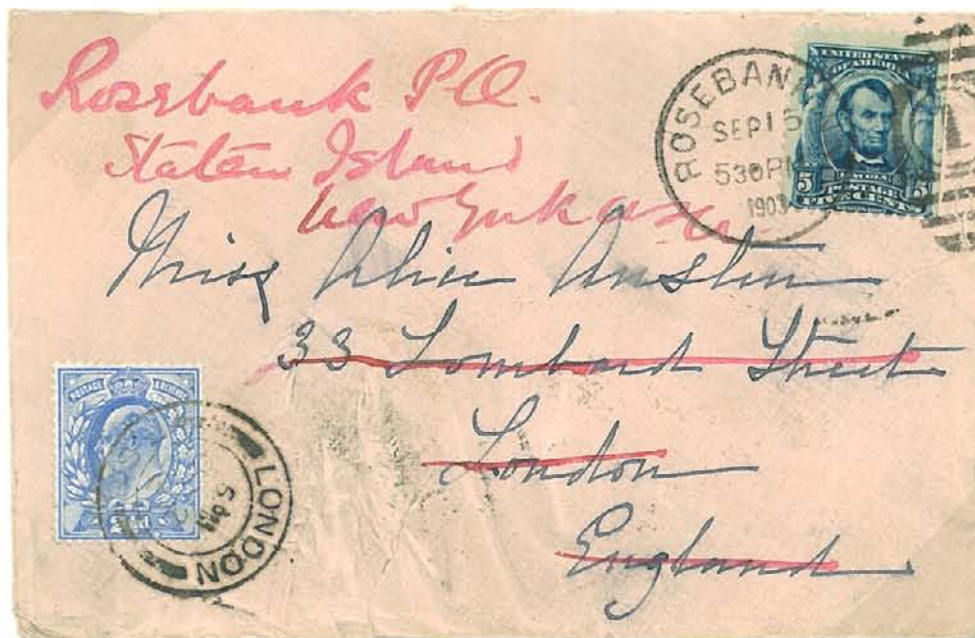 Rosebank P.O.
Staten Island
New York U.S.A.
ROSEBANK
SEP 15
530 PM
1903
UNITED STATES
OF AMERICA
5 5
POSTAGE
FIVE CENTS
Miss Alice Austen
33 Lombard Street
London
England
POSTAGE
LONDON